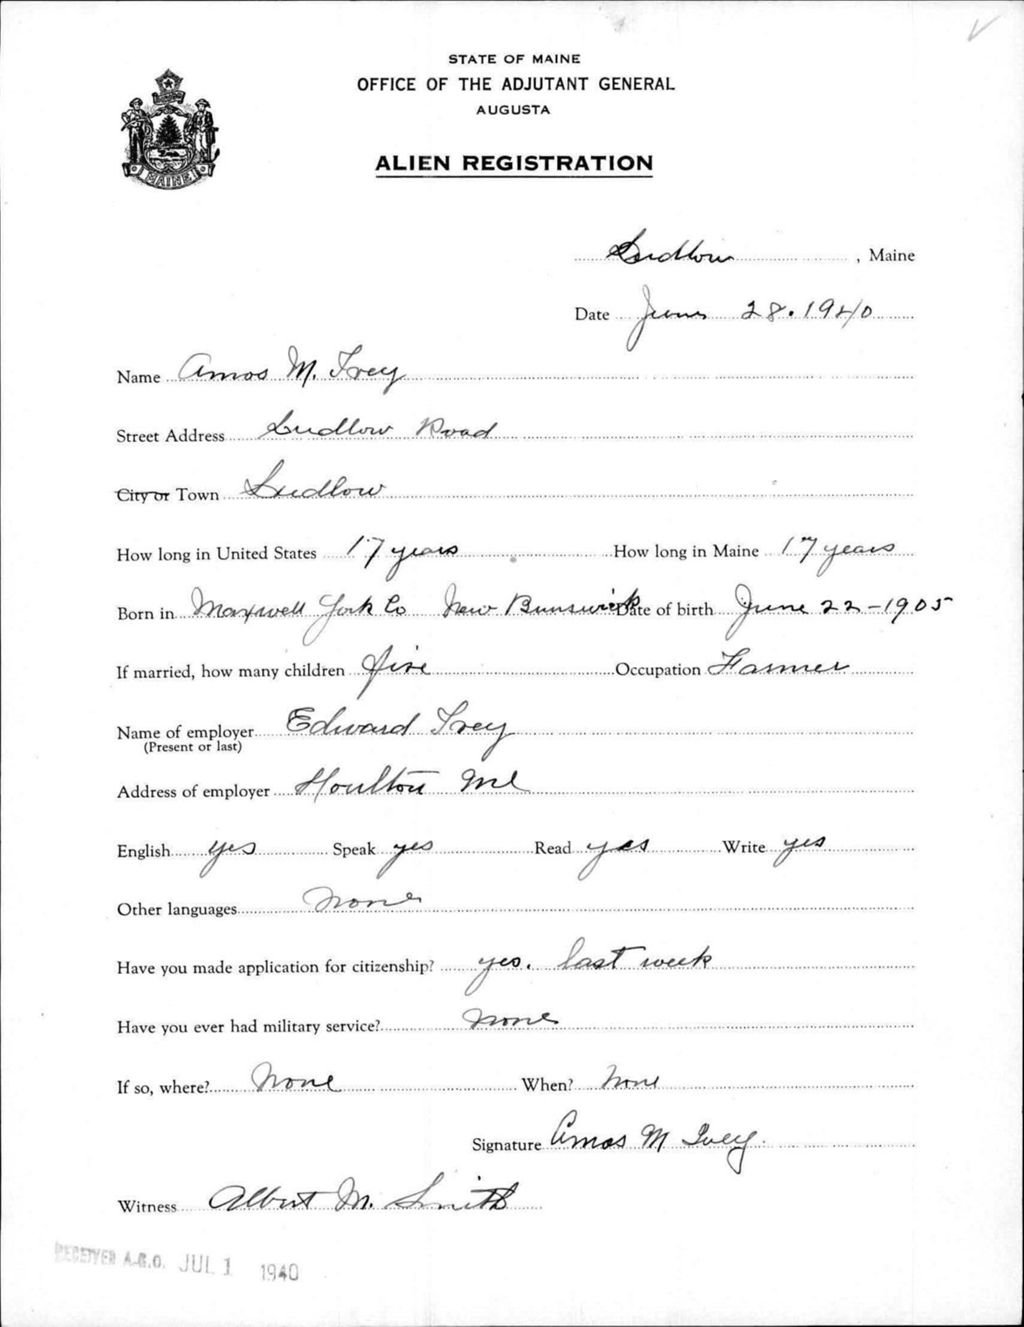 STATE OF MAINE
OFFICE OF THE ADJUTANT GENERAL
AUGUSTA
MAINE
ALIEN REGISTRATION
Ludlow, Maine
Date June 28. 1940
Name Amos M. Ivey
Street Address Ludlow Road
City or Town Ludlow
How long in United States 17 years How long in Maine 17 years
Born in Maxwell York Co New Bunswick Date of birth June 22-1905
If married, how many children five Occupation Farmer
Name of employer Edward Ivey
(Present or last)
Address of employer Houlton Me
English yes Speak yes Read yes Write yes
Other languages None
Have you made application for citizenship? yes. last week
Have you ever had military service? None
If so, where? None When? None
Signature Amos M Ivey.
Witness Albert M. Smith
RECEIVED A.G.O. JUL 1 1940